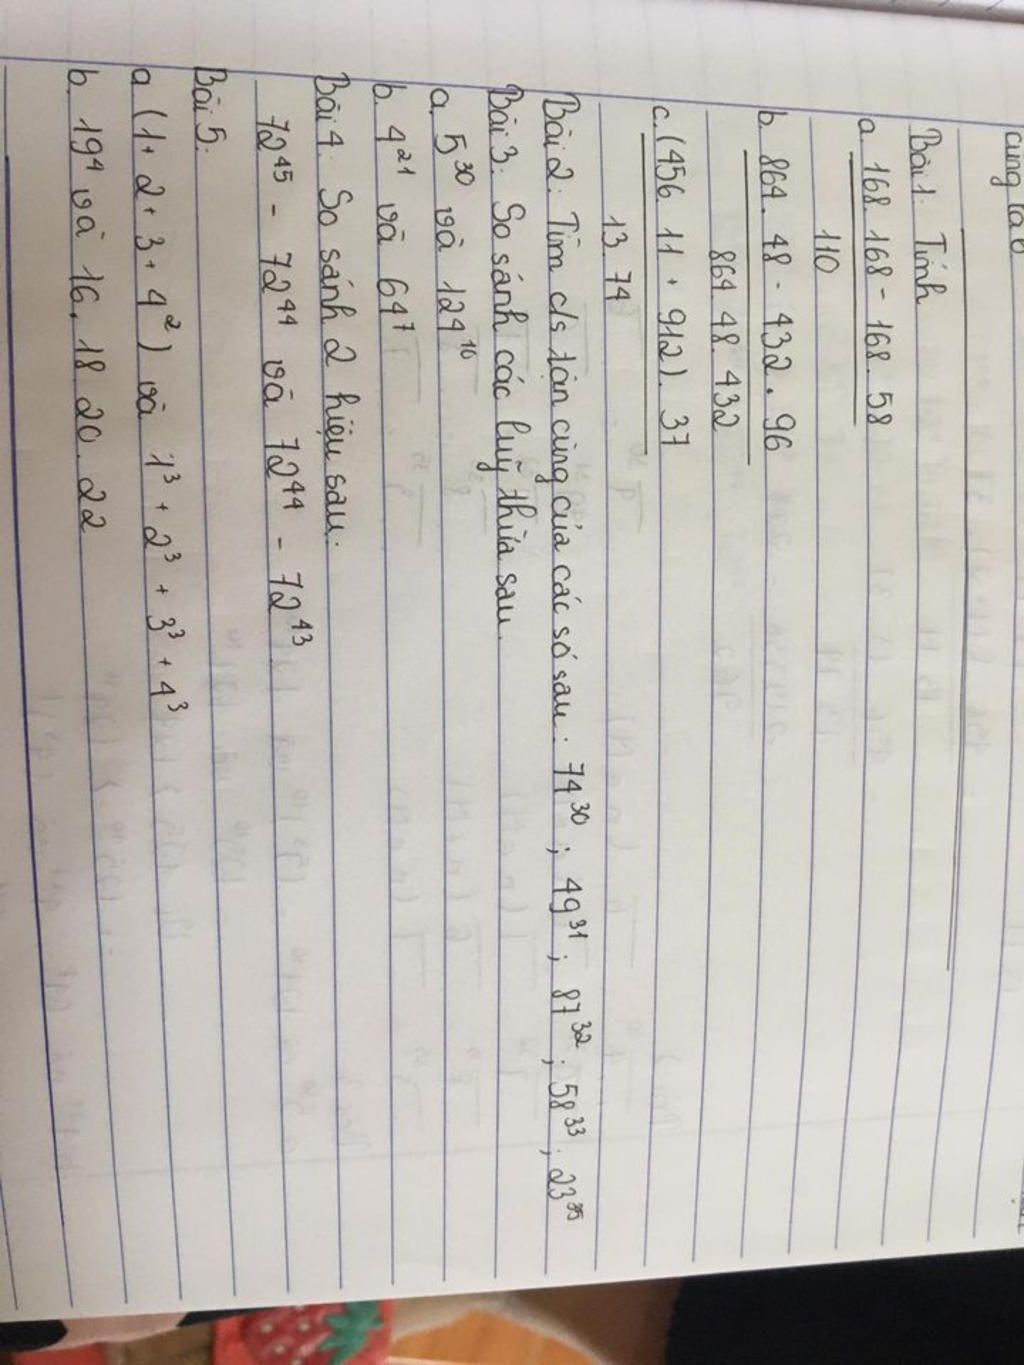 cũng là 6
Bài 1. Tính
a. 168. 168 - 168. 58
110
b. 864. 48 - 432. 96
864. 48. 432
c. (456. 11 + 912). 37
13. 74
Bài 2: Tìm c/s tận cùng của các số sau: 74³⁰; 49³¹; 87³²; 58³³; 23³⁵
Bài 3: So sánh các luỹ thừa sau.
a. 5³⁰ và 124¹⁰
b. 4²¹ và 64⁷
Bài 4: So sánh 2 hiệu sau:
72⁴⁵ - 72⁴⁴ và 72⁴⁴ - 72⁴³
Bài 5:
a (1 + 2 + 3 + 4²) và 1³ + 2³ + 3³ + 4³
b. 19⁴ và 16. 18. 20. 22